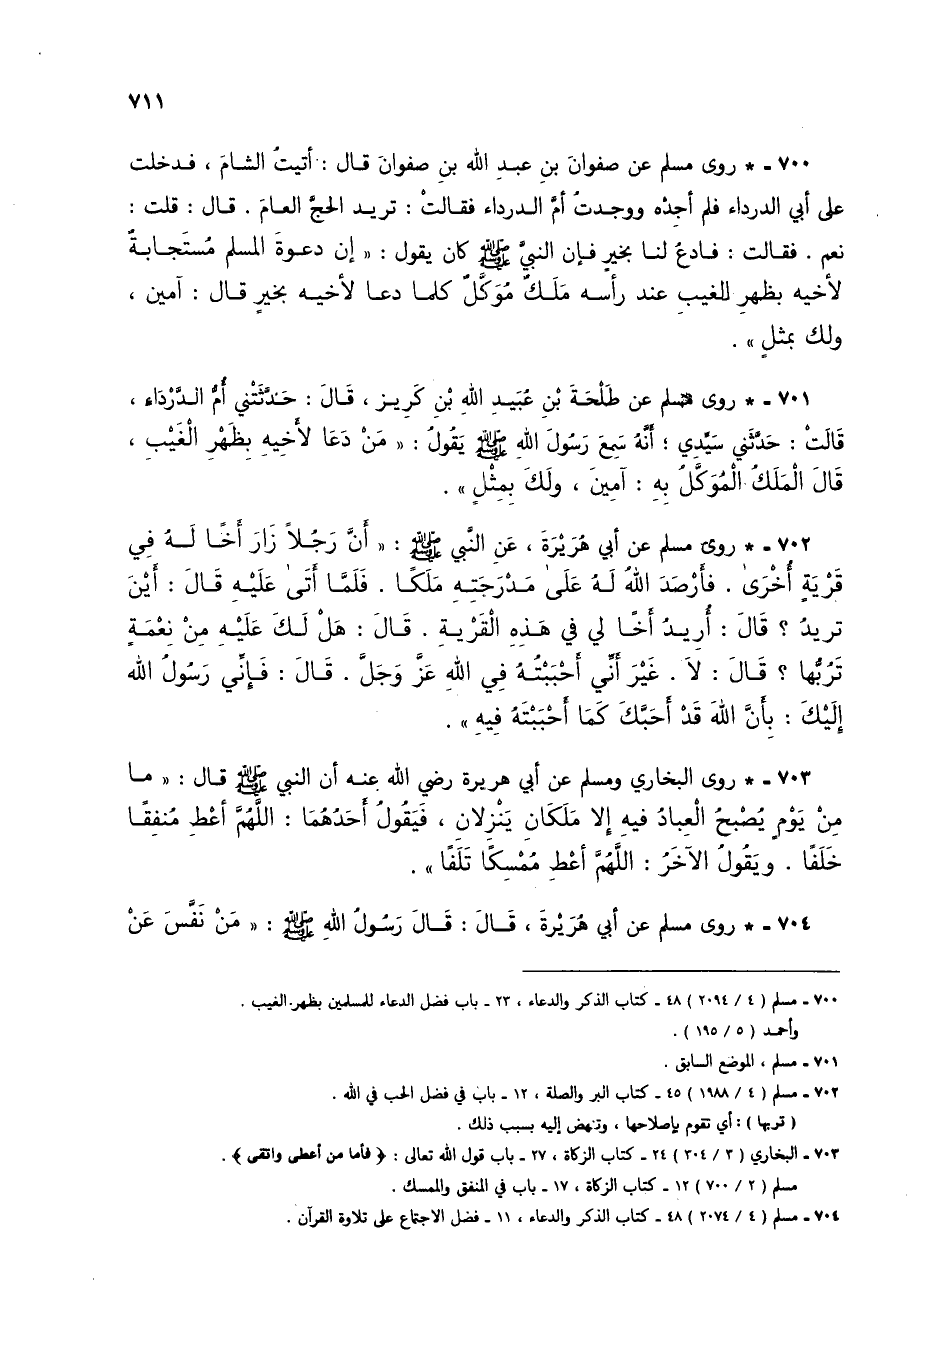 ٧١١
٧٠٠ - * روى مسلم عن صفوانَ بنِ عبدِ الله بنِ صفوانَ قال : أتيتُ الشامَ ، فدخلت
على أبي الدرداء فلم أجِدْه ووجدتُ أمَّ الدرداء فقالتْ : تريد الحجَّ العامَ . قال : قلت :
نعم . فقالت : فادعُ لنا بخيرٍ فإن النبيَّ ﷺ كان يقول : « إن دعوةَ المسلم مُستَجابةٌ
لأخيه بظهرِ للغيبِ عند رأسه مَلَكٌ مُوَكَّلٌ كلما دعا لأخيه بخيرٍ قال : آمين ،
ولك بمثلٍ » .
٧٠١ - * روى مسلم عن طَلْحَةَ بْنِ عُبَيدِ اللهِ بْنِ كَرِيز ، قَالَ : حَدَّثَتْني أُمُّ الدَّرْدَاء ،
قَالَتْ : حَدَّثَني سَيِّدِي ؛ أَنَّهُ سَمِعَ رَسُولَ اللهِ ﷺ يَقُولُ : « مَنْ دَعَا لأخِيهِ بِظَهْرِ الْغَيْبِ ،
قَالَ الْمَلَكُ الْمُوَكَّلُ بِهِ : آمِينَ ، ولَكَ بِمِثْلٍ » .
٧٠٢ - * روى مسلم عن أبي هُرَيْرَةَ ، عَنِ النَّبي ﷺ : « أَنَّ رَجُلاً زَارَ أَخًا لَهُ فِي
قَرْيَةٍ أُخْرَى . فأَرْصَدَ اللهُ لَهُ عَلَى مَدْرَجَتِهِ مَلَكًا . فَلَمَّا أَتَى عَلَيْهِ قَالَ : أَيْنَ
تريدُ ؟ قَالَ : أُرِيدُ أَخًا لِي فِي هَذِهِ الْقَرْيةِ . قَالَ : هَلْ لَكَ عَلَيْهِ مِنْ نِعْمَةٍ
تَرُبُّها ؟ قَالَ : لاَ . غَيْرَ أَنِّي أَحْبَبْتُهُ فِي اللهِ عَزَّ وَجَلَّ . قَالَ : فَإنِّي رَسُولُ الله
إلَيْكَ : بِأَنَّ اللهَ قَدْ أَحبَّكَ كَمَا أَحْبَبْتَهُ فِيهِ » .
٧٠٣ - * روى البخاري ومسلم عن أبي هريرة رضي الله عنه أن النبي ﷺ قال : « ما
مِنْ يَوْمٍ يُصْبحُ الْعبادُ فيهِ إلا مَلَكَان يَنْزِلان ، فَيَقُولُ أَحَدُهُمَا : اللَّهُمَّ أعْطِ مُنفِقًا
خَلَفًا . ويَقُولُ الآخَرُ : اللَّهُمَّ أعْطِ مُمْسِكًا تَلَفًا » .
٧٠٤ - * روى مسلم عن أبي هُرَيْرةَ ، قَالَ : قَالَ رَسُولُ اللهِ ﷺ : « مَنْ نَفَّسَ عَنْ
٧٠٠ - مسلم ( ٤ / ٢٠٩٤ ) ٤٨ - كتاب الذكر والدعاء ، ٢٣ - باب فضل الدعاء للمسلمين بظهر الغيب .
وأحمد ( ٥ / ١٩٥ ) .
٧٠١ - مسلم ، الموضع السابق .
٧٠٢ - مسلم ( ٤ / ١٩٨٨ ) ٤٥ - كتاب البر والصلة ، ١٢ - باب في فضل الحب في الله .
( تربها ) : أي تقوم بإصلاحها ، وتنهض إليه بسبب ذلك .
٧٠٣ - البخاري ( ٣ / ٣٠٤ ) ٢٤ - كتاب الزكاة ، ٢٧ - باب قول الله تعالى : ﴿ فأما من أعطى واتقى ﴾ .
مسلم ( ٢ / ٧٠٠ ) ١٢ - كتاب الزكاة ، ١٧ - باب في المنفق والممسك .
٧٠٤ - مسلم ( ٤ / ٢٠٧٤ ) ٤٨ - كتاب الذكر والدعاء ، ١١ - فضل الاجتماع على تلاوة القرآن .